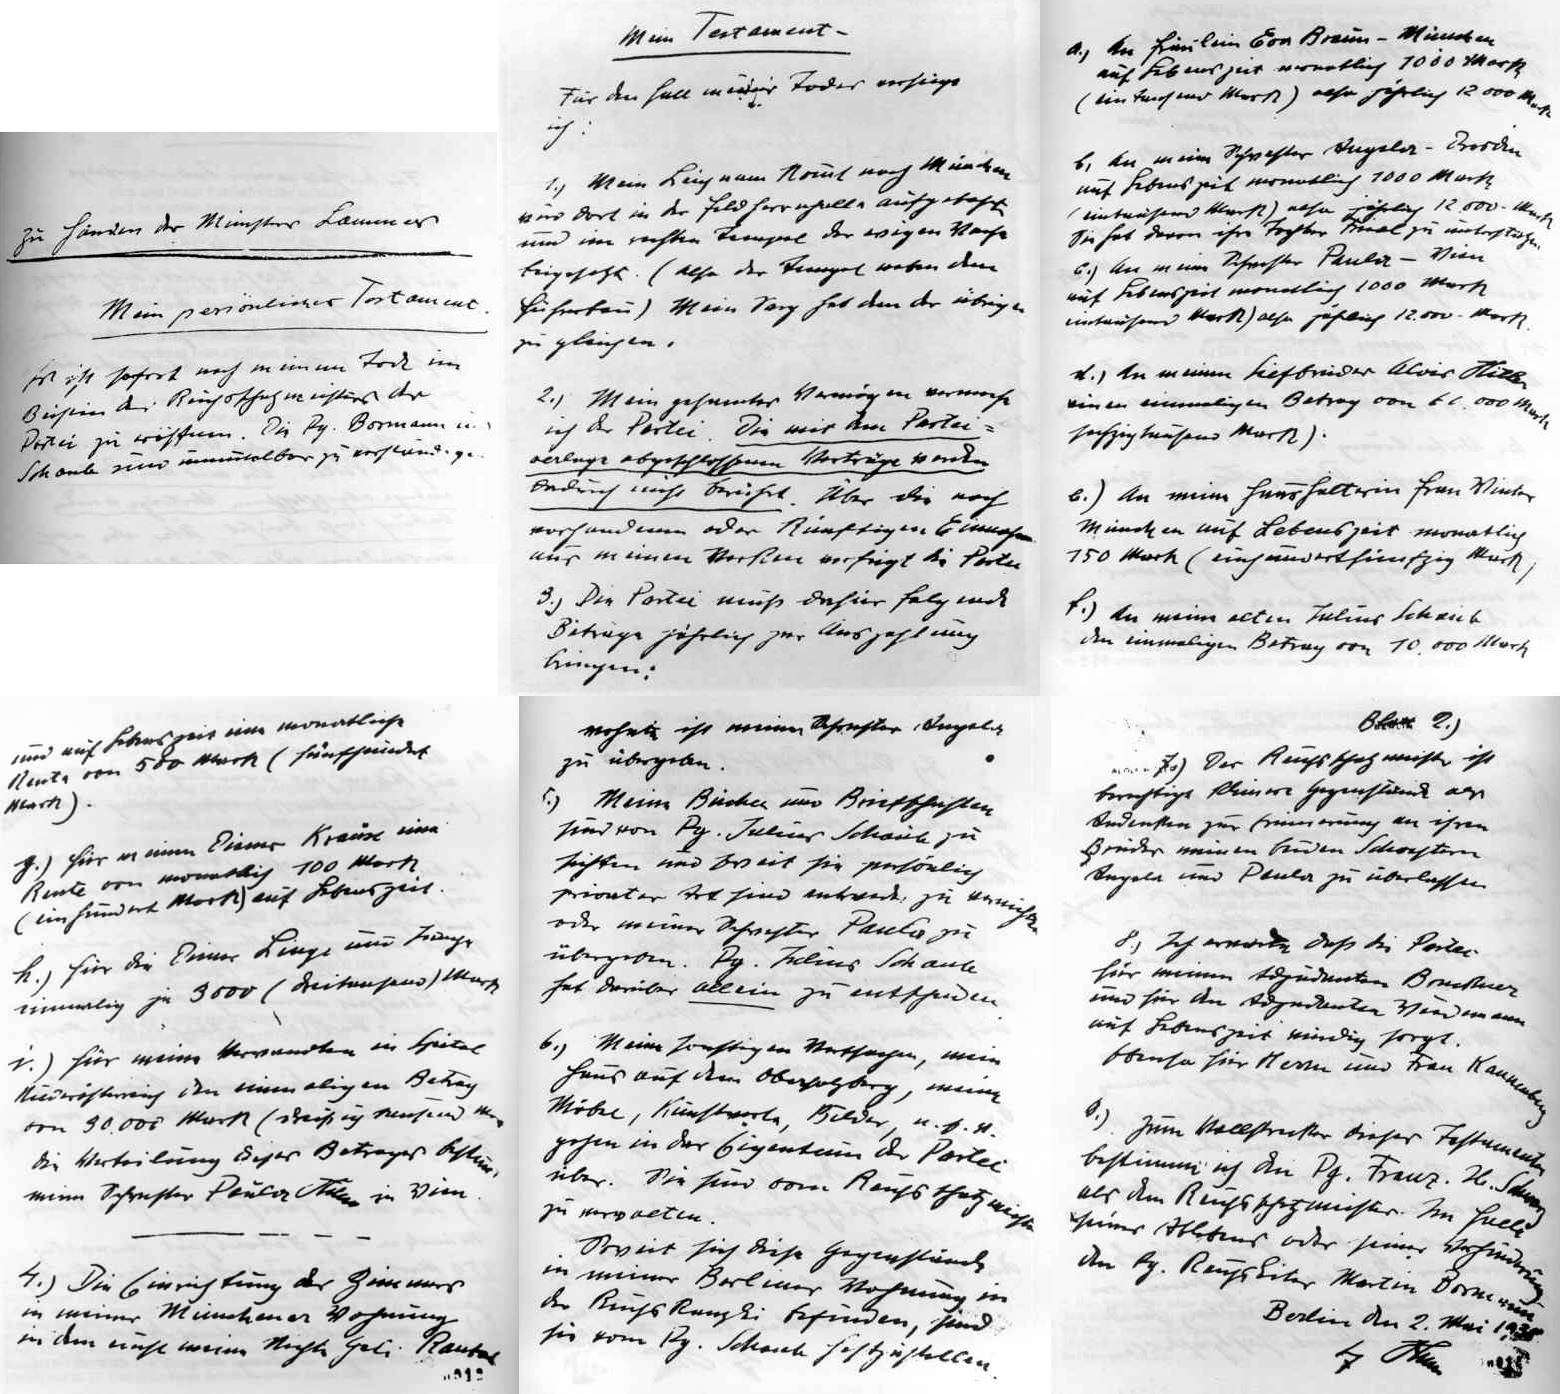 zu Händen des Ministers Lammers
Mein persönliches Testament.
Es ist sofort nach meinem Tode im
Beisein des Reichsschatzmeisters der
Partei zu eröffnen. Die Pg. Bormann und
Schaub sind unmittelbar zu verständigen
Mein Testament-
Für den Fall meines Todes verfüge
ich:
1.) Mein Leichnam kommt nach München
wird dort in der Feldherrnhalle aufgebahrt
und im rechten Tempel der ewigen Wache
beigesetzt. (also der Tempel neben dem
Führerbau) Mein Sarg hat dem der übrigen
zu gleichen.
2.) Mein gesamtes Vermögen vermache
ich der Partei. Die mit dem Partei=
verlage abgeschlossenen Verträge werden
dadurch nicht berührt. Über die noch
vorhandenen oder künftigen Einnahmen
aus meinen Werken verfügt die Partei
3.) Die Partei muß dafür folgende
Beträge jährlich zur Auszahlung
bringen:
a.) An Fräulein Eva Braun - München
auf Lebenszeit monatlich 1000 Mark
(eintausend Mark) also jährlich 12 000 Mark
b, An meine Schwester Angela - Dresden
auf Lebenszeit monatlich 1000 Mark
(eintausend Mark) also jährlich 12 000- Mark
Sie hat davon ihre Tochter Friedl zu unterstützen.
c.) An meine Schwester Paula - Wien
auf Lebenszeit monatlich 1000 Mark
eintausend Mark) also jährlich 12.000- Mark.
d.) An meinen Stiefbruder Alois Hitler
einen einmaligen Betrag von 60.000 Mark
sechzigtausend Mark).
e.) An meine Haushälterin Frau Winter
München auf Lebenszeit monatlich
150 Mark (einhundertfünfzig Mark)
f.) An meinen alten Julius Schaub
den einmaligen Betrag von 10.000 Mark
und auf Lebenszeit eine monatliche
Rente von 500 Mark (fünfhundert
Mark).
g.) Für meinen Diener Krause eine
Rente von monatlich 100 Mark
(einhundert Mark) auf Lebenszeit.
h.) für die Diener Linge und Junge
einmalig je 3000 (dreitausend) Mark
i.) Für meine Verwandten in Spital
Niederösterreich den einmaligen Betrag
von 30.000 Mark (dreißig tausend Mark
die Verteilung dieses Betrages bestimmt
meine Schwester Paula Hitler in Wien.
4.) Die Einrichtung des Zimmers
in meiner Münchener Wohnung
in dem einst meine Nichte Geli Raubal
wohnte ist meiner Schwester Angela
zu übergeben.
5.) Meine Bücher und Briefschaften
sind von Pg. Julius Schaub zu
sichten und soweit sie persönlich
privater Art sind entweder zu vernichten
oder meiner Schwester Paula zu
übergeben. Pg. Julius Schaub
hat darüber allein zu entscheiden
6.) Meine sonstigen Wertsachen, mein
Haus auf dem Obersalzberg, meine
Möbel, Kunstwerke, Bilder, u.s.w.
gehen in das Eigentum der Partei
über. Sie sind vom Reichsschatzmeister
zu verwalten.
Soweit sich diese Gegenstände
in meiner Berliner Wohnung in
der Reichskanzlei befinden, sind
sie vom Pg. Schaub festzustellen.
Blatt 2.)
7.) Der Reichsschatzmeister ist
berechtigt kleinere Gegenstände als
Andenken zur Erinnerung an ihren
Bruder meinen beiden Schwestern
Angela und Paula zu überlassen
8.) Ich erwarte daß die Partei
für meinen Adjudanten Brückner
und für den Adjudanten Wiedemann
auf Lebenszeit würdig sorgt.
Ebenso für Herrn und Frau Kannenberg
9.) Zum Vollstrecker dieses Testamentes
bestimme ich den Pg. Franz. X. Schwarz
als dem Reichsschatzmeister. Im Falle
seines Ablebens oder seiner Verhinderung
den Pg. Reichsleiter Martin Bormann
Berlin den 2. Mai 1938